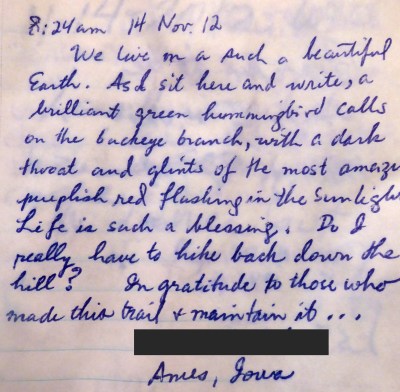 8:24am 14 Nov. 12
We live on a such a beautiful
Earth. As I sit here and write, a
brilliant green hummingbird calls
on the buckeye branch, with a dark
throat and glints of the most amazin
purplish red flushing in the sunligh
Life is such a blessing. Do I
really have to hike back down the
hill? In gratitude to those who
made this trail & maintain it...
Ames, Iowa